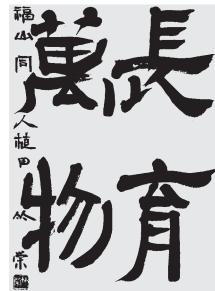 長育
萬物
福山閒人植田竹崇